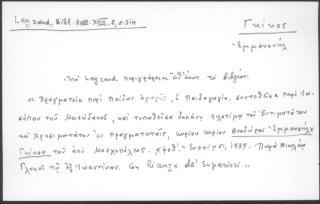 Legrand, Bibl. Hell. XVIII, 2, σ. 314
Γκίκος
Ἐμμανουήλ
Ὑπὸ Legrand περιγράφεται τὸ βιβλίον:
« Πραγματεία περὶ Παίδων ἀγωγῆς, ἢ Παιδαγωγία, συντεθεῖσα παρὰ Ἰω-
σήπου τοῦ Μοισιόδακος, καὶ τυπωθεῖσα δαπάνῃ φιλοτίμῳ τοῦ Ἐντιμοτάτου
καὶ Χρησιμωτάτου ἐν πραγματευταῖς, κυρίου κυρίου Θεοδώρου Ἐμμανουὴλ
Γκίκου τοῦ ἀπὸ Μοσχοπόλεως. Ἐνετίῃσι, 1779. Παρὰ Νικολάῳ
Γλυκεῖ τῷ ἐξ Ἰωαννίνων. Con licenza de' Superiori...